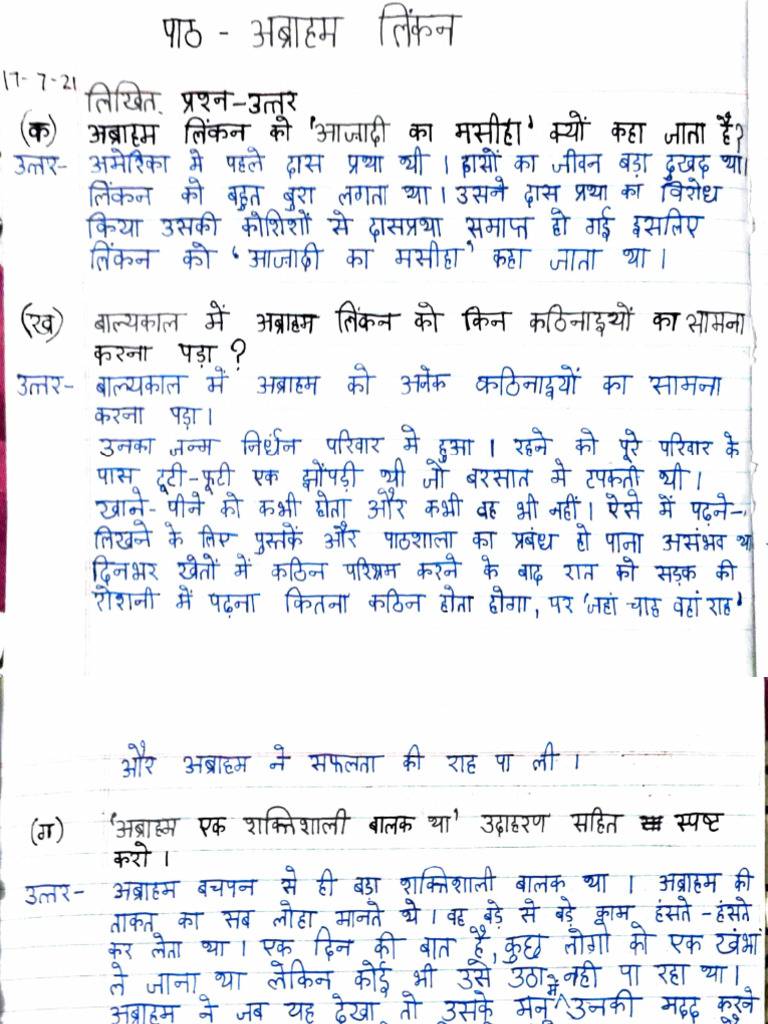 पाठ - अब्राहम लिंकन
17-7-21
लिखित प्रश्न-उत्तर
(क) अब्राहम लिंकन को 'आजादी का मसीहा' क्यों कहा जाता है?
उत्तर- अमेरिका मे पहले दास प्रथा थी । दासों का जीवन बड़ा दुखद था।
लिंकन को बहुत बुरा लगता था । उसने दास प्रथा का विरोध
किया उसकी कोशिशों से दासप्रथा समाप्त हो गई इसलिए
लिंकन को 'आजादी का मसीहा' कहा जाता था ।
(ख) बाल्यकाल में अब्राहम लिंकन को किन कठिनाइयों का सामना
करना पड़ा ?
उत्तर- बाल्यकाल में अब्राहम को अनेक कठिनाइयों का सामना
करना पड़ा ।
उनका जन्म निर्धन परिवार मे हुआ । रहने को पूरे परिवार के
पास टूटी-फूटी एक झोंपड़ी थी जो बरसात मे टपकती थी ।
खाने-पीने को कभी होता और कभी वह भी नहीं । ऐसे में पढ़ने-
लिखने के लिए पुस्तकें और पाठशाला का प्रबंध हो पाना असंभव था
दिनभर खेतों में कठिन परिश्रम करने के बाद रात को सड़क की
रोशनी में पढ़ना कितना कठिन होता होगा, पर 'जहां चाह वहां राह'
और अब्राहम ने सफलता की राह पा ली ।
(ग) 'अब्राहम एक शक्तिशाली बालक था' उदाहरण सहित स्पष्ट
करो ।
उत्तर- अब्राहम बचपन से ही बड़ा शक्तिशाली बालक था । अब्राहम की
ताकत का सब लोहा मानते थे । वह बड़े से बड़े काम हंसते-हंसते
कर लेता था । एक दिन की बात है, कुछ लोगो को एक खंभा
ले जाना था लेकिन कोई भी उसे उठा नही पा रहा था ।
अब्राहम ने जब यह देखा तो उसके मन में उनकी मदद करने